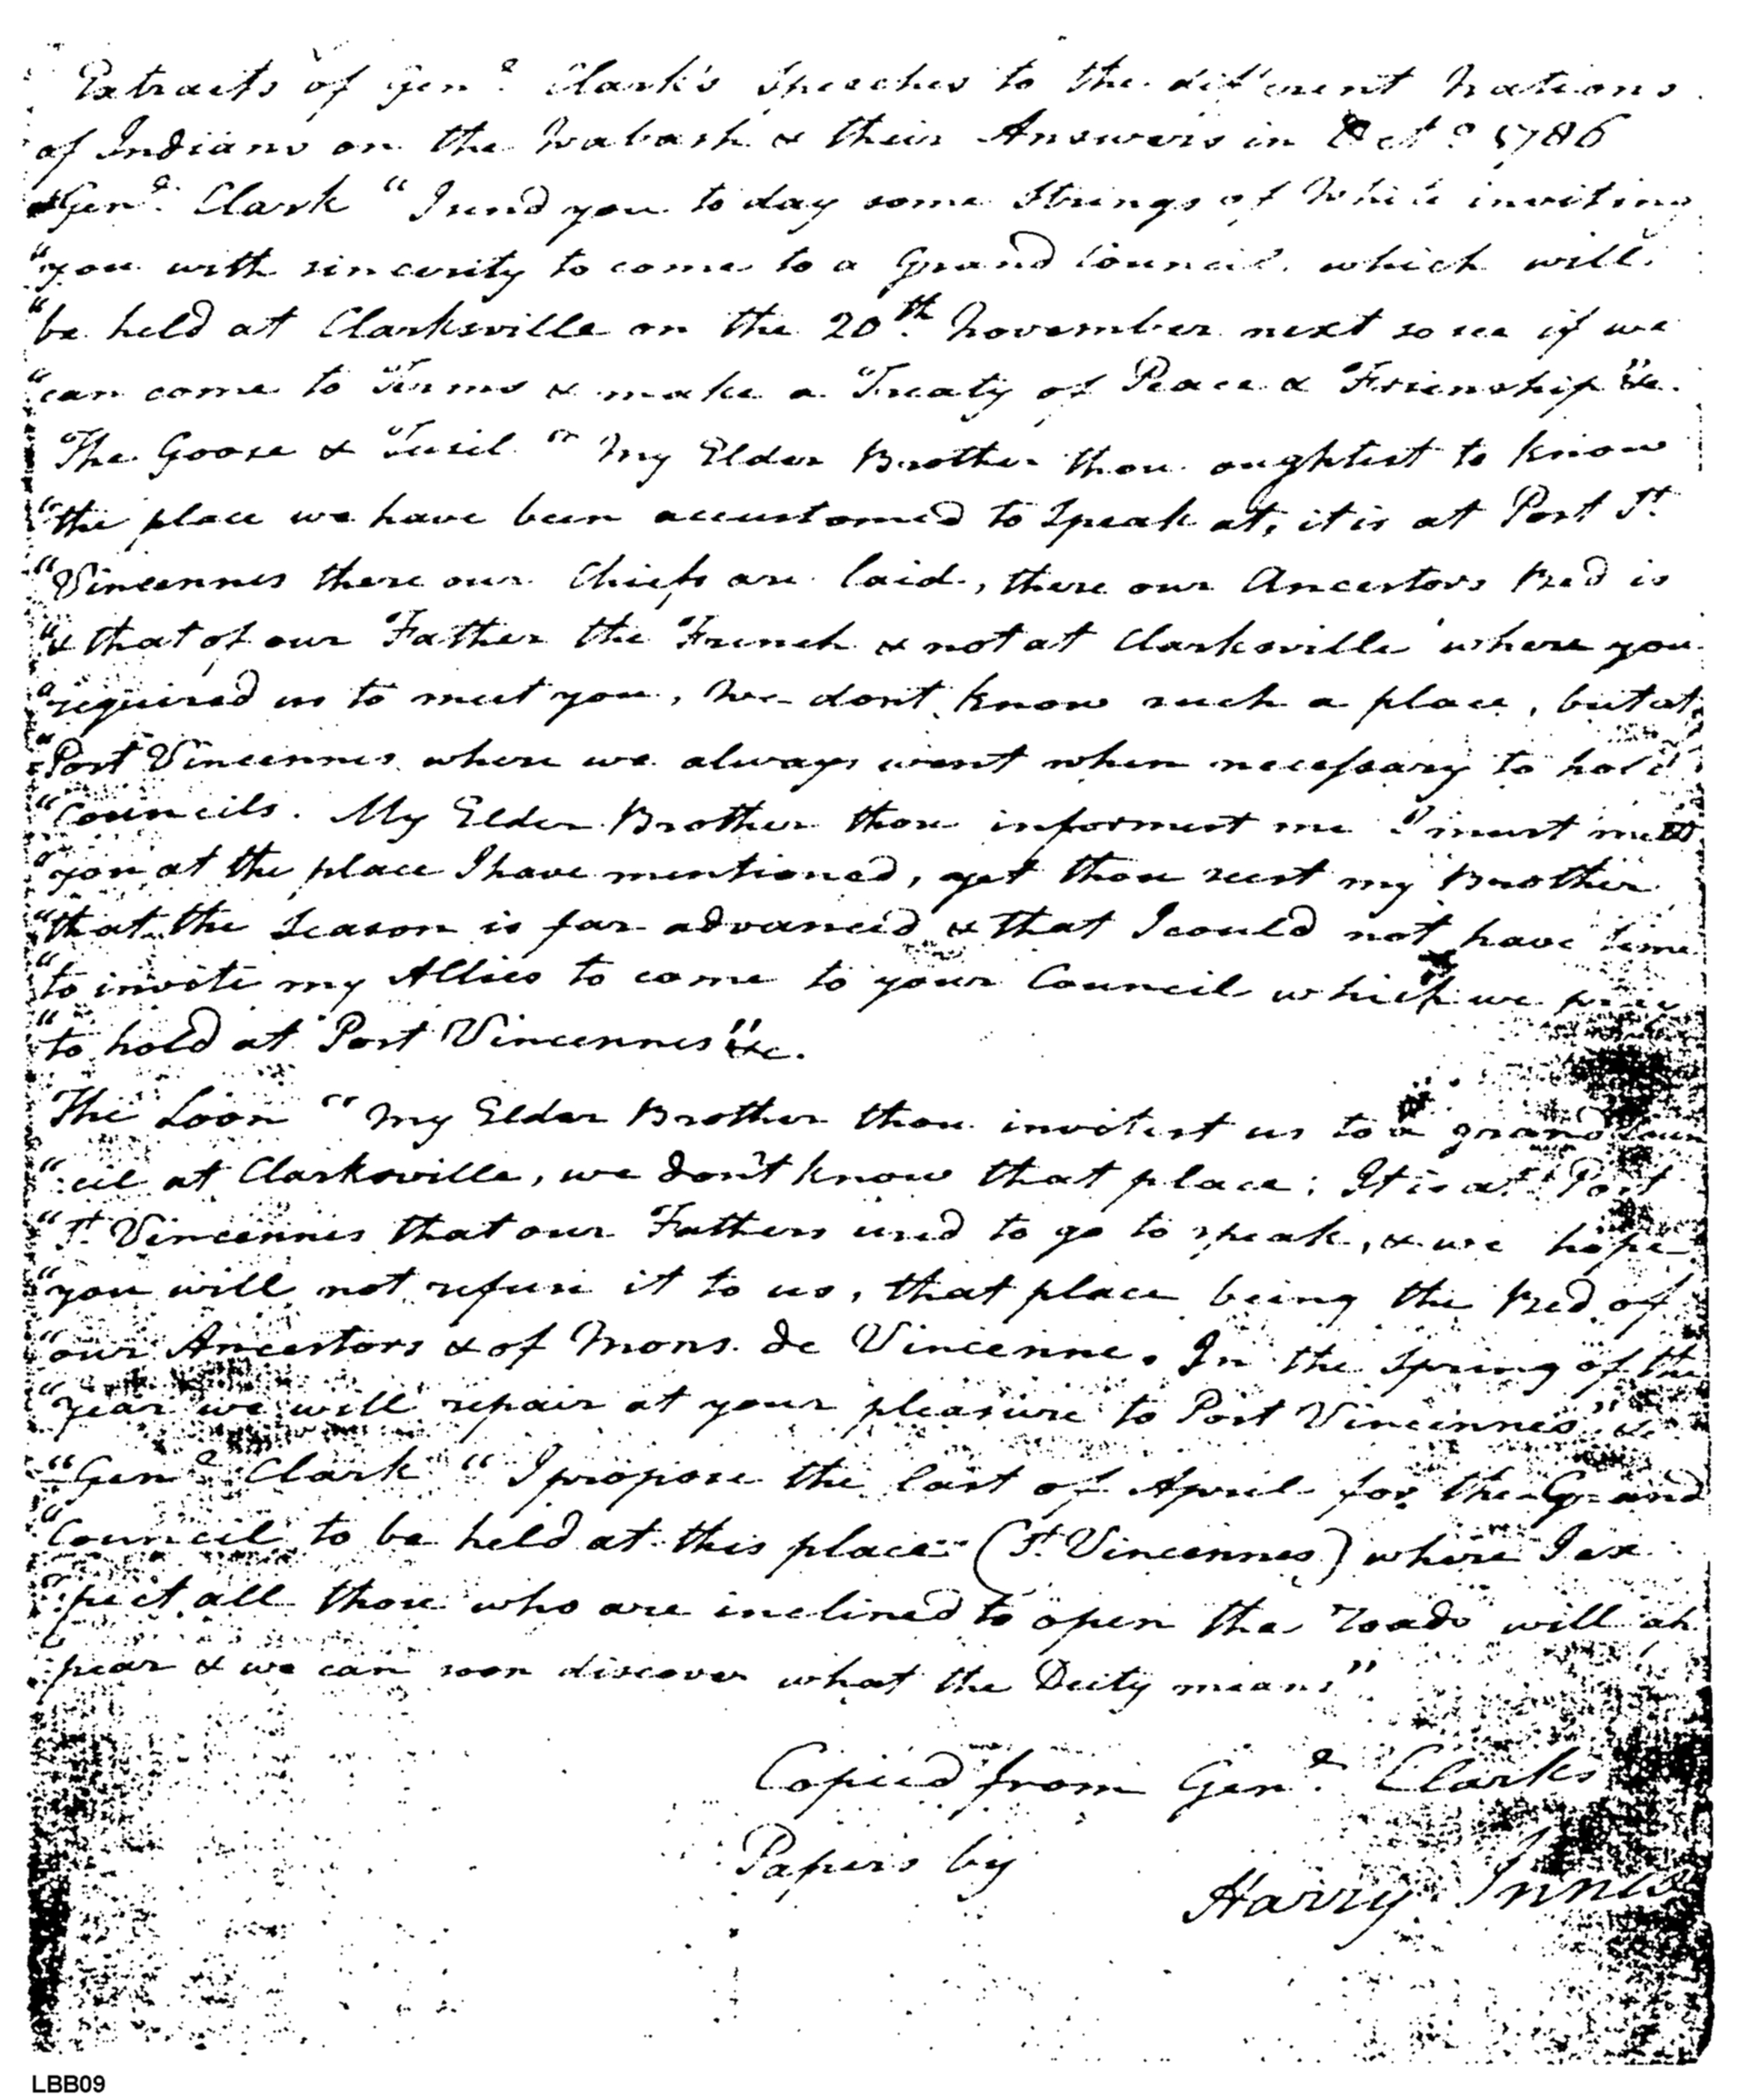 Extracts of Gen.l Clark's Speeches to the different Nations
of Indians on the Wabash & their Answers in Oct.r 1786
Gen.l Clark "I send you to day some Strings of White inviting
"you with sincerity to come to a Grand Council which will
"be held at Clarksville on the 20.th November next to see if we
"can come to Terms & make a Treaty of Peace & Frienship "&c.
The Goose & Fusil "My Elder Brother thou oughtest to know
"the place we have been accustomed to Speak at, it is at Port St.
"Vincennes there our Chiefs are laid, there our Ancestors Bed is
"& that of our Father the French & not at Clarksville where you
"required us to meet you, We dont know such a place, but at
"Port Vincennes where we always went when necessary to hold
"Councils. My Elder Brother thou informest me I must meet
"you at the place I have mentioned, yet thou seest my Brother
"that the Season is far advanced & that I could not have time
"to invite my Allies to come to your Council which we pray
"to hold at Port Vincennes "&c.
The Loon "My Elder Brother thou invitest us to a grand Coun
"cil at Clarksville, we don't know that place; It is at Port
"St. Vincennes that our Fathers used to go to speak, & we hope
"you will not refuse it to us, that place being the Bed of
"our Ancestors & of Mons. de Vincenne. In the Spring of the
"year we will repair at your pleasure to Port Vincennes" &c
"Gen.l Clark "I propose the last of April for the Grand
"Council to be held at this place (St. Vincennes) where I ex
"pect all those who are inclined to open the roads will ap
pear & we can soon discover what the Deity means"
Copied from Gen.l Clarks
Papers by
Harry Innes
LBB09